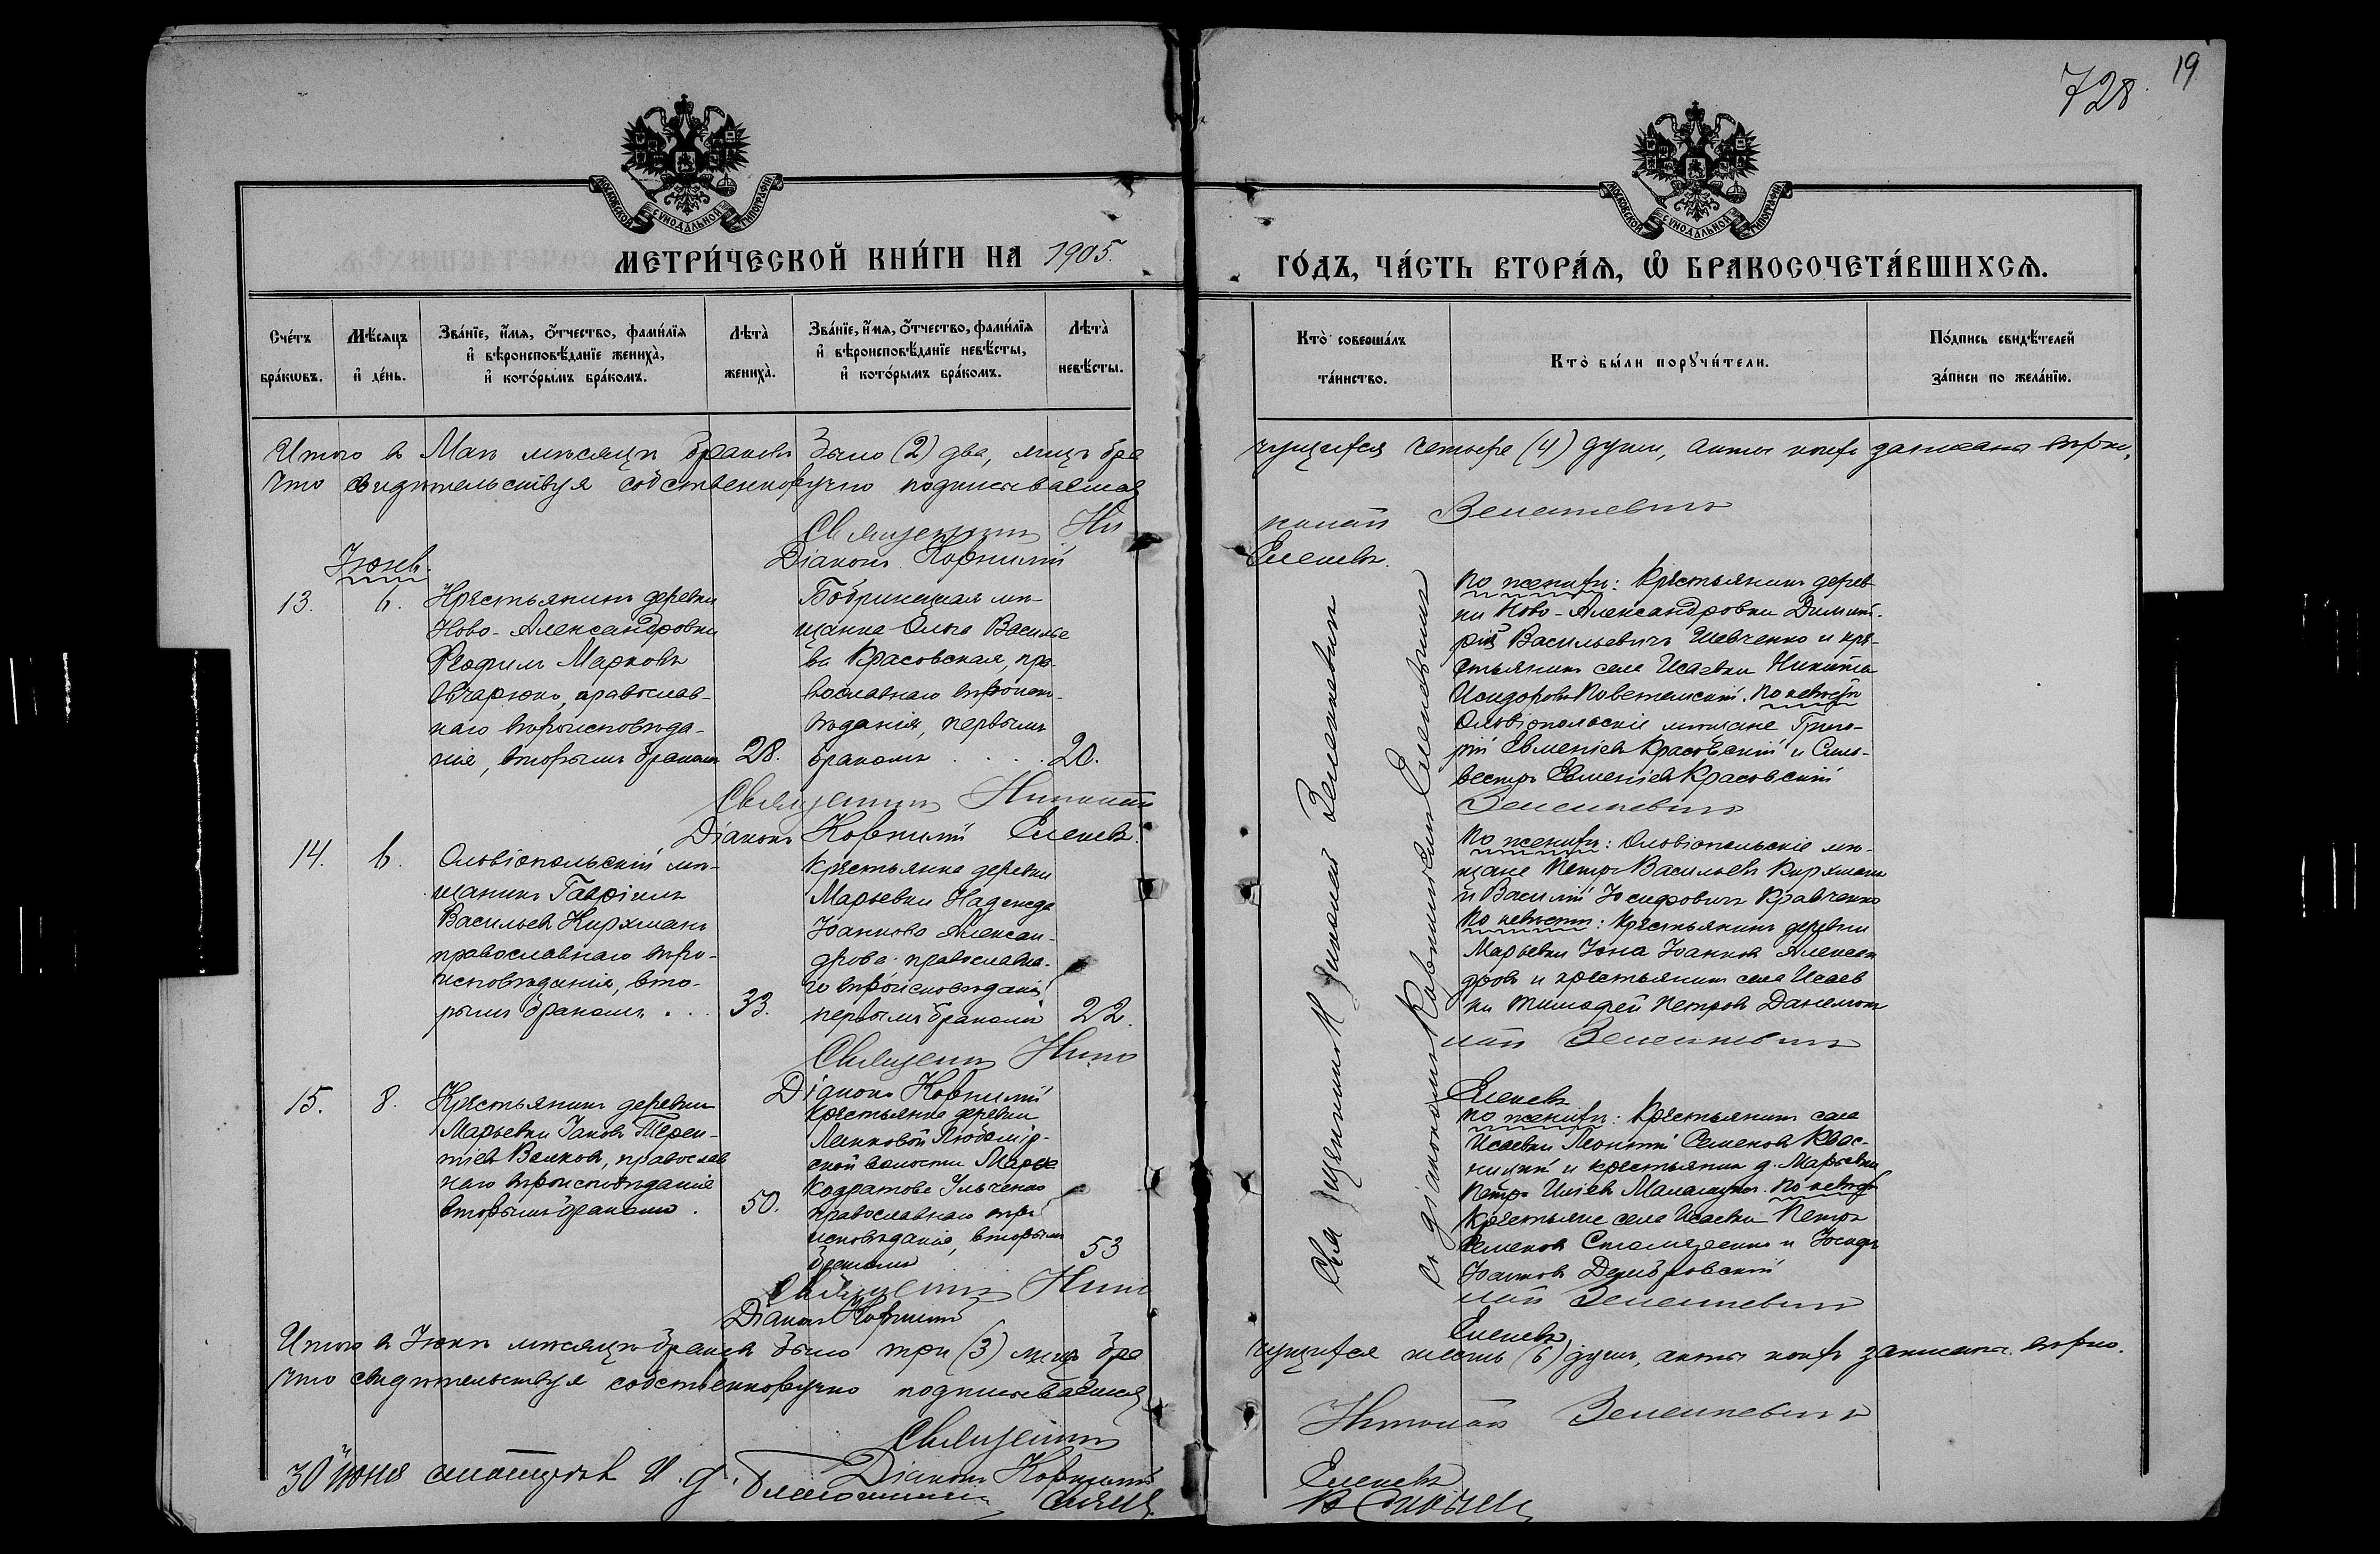 728.
19
МОСКОВСКОЙ СѴНОДАЛЬНОЙ ТИПОГРАФІИ
МОСКОВСКОЙ СѴНОДАЛЬНОЙ ТИПОГРАФІИ
МЕТРИ́ЧЕСКОЙ КНИ́ГИ НА 1905.
ГО́ДЪ, ЧА́СТЬ ВТОРА́Ѧ, Ѡ҆ БРАКОСОЧЕТА́ВШИХСѦ.
Сче́тъ бра́кѡвъ.
Мѣ́сяцъ и҆ де́нь.
Зва́нїе, и҆́мя, о҆́тчество, фами́лїя
и҆ вѣроисповѣ́данїе жениха̀,
и҆ кото́рымъ бра́комъ.
Лѣта̀ жениха̀.
Зва́нїе, и҆́мя, о҆́тчество, фами́лїя
и҆ вѣроисповѣ́данїе невѣ́сты,
и҆ кото́рымъ бра́комъ.
Лѣта̀ невѣ́сты.
Кто̀ соверша́лъ та́инство.
Кто̀ бы́ли порꙋчи́тели.
По́дпись свидѣ́телей за́писи по жела́нїю.
Итого в Маѣ мѣсяцѣ браковъ было (2) два, лицъ бра
чущихся четыре (4) души, акты коихъ записаны вѣрно,
что свидѣтельствуя собственноручно подписываемся
Священникъ Ни
колай Зеленкевичъ
Діаконъ Корнилій
Еленевъ.
Іюнь.
13.
6.
Крестьянинъ деревни
Ново-Александровки
Ѳеофилъ Марковъ
Овчарюкъ, православ-
наго вѣроисповѣда-
нія, вторымъ бракомъ
28.
Бобринецкая мѣ-
щанка Ольга Василье
ва Красовская, пра-
вославнаго вѣроиспо-
вѣданія, первымъ
бракомъ . . .
20.
По женихѣ: Крестьянинъ дерев
ни Ново-Александровки Димит-
рій Васильевичъ Шевченко и кре-
стьянинъ села Исаевки Никита
Исидоровъ. По невѣстѣ
Ольвіопольскіе мѣщане Григо-
рій Евменіевъ Красовскій и Силь-
вестръ Евменіевъ Красовскій
Священникъ Николай
Зеленкевичъ
Діаконъ Корнилій Еленевъ.
Священникъ Николай Зеленкевичъ
съ діакономъ Корниліемъ Еленевымъ
14.
6.
Ольвіопольскій мѣ-
щанинъ Гавріилъ
Васильевъ Кирхманъ
православнаго вѣро-
исповѣданія, вто-
рымъ бракомъ . . .
33.
Крестьянка деревни
Марьевки Надежда
Іоаннова Алексан-
дрова православна-
го вѣроисповѣданія,
первымъ бракомъ
22.
По женихѣ: Ольвіопольскіе мѣ-
щане Петръ Васильевъ Кирхманъ
и Василій Іосифовичъ Кравченко
По невѣстѣ: Крестьянинъ деревни
Марьевки Іона Іоанновъ Алексан
дровъ и крестьянинъ села Исаев
ки Тимофей Петровъ
Священникъ Нико
лай Зеленкевичъ
Діаконъ Корнилій
Еленевъ
15.
8.
Крестьянинъ деревни
Марьевки Іаковъ Терен-
тіевъ Волковъ, православ
наго вѣроисповѣданія
вторымъ бракомъ .
50.
Крестьянка деревни
Любомір-
ской волости Марѳа
Кодратова Ильченко
православнаго вѣро
исповѣданія, вторымъ
бракомъ
53
По женихѣ: Крестьянинъ села
Исаевки Леонтій Семеновъ Квас-
ницкій и крестьянинъ д. Марьевки
Петръ. По невѣстѣ
Крестьяне села Исаевки Петръ
Семеновъ и Іосифъ
Іоанновъ Домбровскій
Священникъ Нико
лай Зеленкевичъ
Діаконъ Корнилій
Еленевъ
Итого в Іюнѣ мѣсяцѣ браковъ было три (3) лицъ бра
чущихся шесть (6) душъ, акты коихъ записаны вѣрно.
что свидѣтельствуя собственноручно подписываемся
Священникъ
Николай Зеленкевичъ
Діаконъ Корнилій
Еленевъ
30 іюня смотрѣлъ И. д.